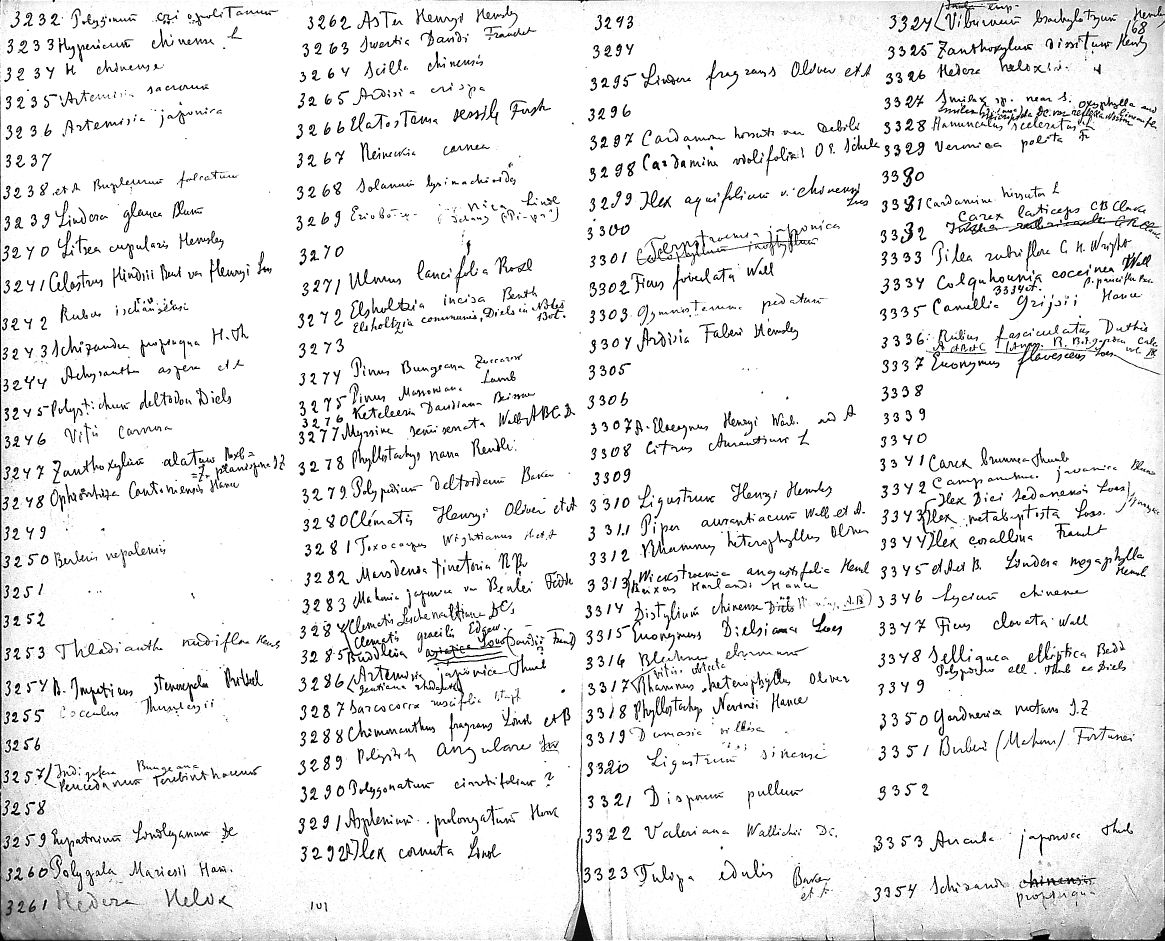 3232 Polygonum
3233 Hypericum chinense L
3234 H chinense
3235 Artemisia sacrorum
3236 Artemisia japonica
3237
3238 et A Bupleurum falcatum
3239 Lindera glauca Blum
3240 Litsea cupularis Hemsley
3241 Celastrus Hindsii Bent var Henryi Loes
3242 Rubus
3243 Schizandra propinqua H. Th
3244 Achyranthes aspera et A
3245 Polystichum deltodon Diels
3246 Vitis carnosa
3247 Zanthoxylum alatum Roxb =
= Z. planispina S Z
3248 Ophiorrhiza Cantoniensis Hance
3249
3250 Berberis nepalensis
3251
3252
3253 Thladiantha nudiflora Hemsl
3254 A. Impatiens stenosepala Pritzel
3255 Cocculus Thunbergii
3256
3257 Indigofera Bungeana
Peucedanum terebinthaceum
3258
3259 Eupatorium Lindleyanum DC
3260 Polygala Mariesii Han.
3261 Hedera Helix
3262 Aster Henryi Hemsley
3263 Swertia Davidi Franchet
3264 Scilla chinensis
3265 Ardisia crispa
3266 Elatostema sessile Forst
3267 Reineckia carnea
3268 Solanum lysimachioides
3269 Lindl
3270
3271 Ulmus lancifolia Roxb
3272 Elsholtzia incisa Benth
Elsholtzia communis, Diels in Notes
Bot.
3273
3274 Pinus Bungeana Zuccarini
3275 Pinus Massoniana Lamb
3276 Keteleeria Davidiana Beissn
3277 Myrsine semiserrata Wall A B C D
3278 Phyllostachys nana Rendle
3279 Polypodium deltoideum Baker
3280 Clematis Henryi Oliver et A
3281 Toxocarpus Wightianus
3282 Marsdenia tinctoria R Br
3283 Mahonia japonica var Bealei Fedde
3284 Clematis Leschenaultiana DC
Clematis gracilis Edgew
3285 Buddleia asiatica Lour
3286 Artemisia japonica Thunb
3287 Sarcococca ruscifolia Stapf
3288 Chimonanthus fragrans Lindl et B
3289 angulare
3290 Polygonatum cirrhifolium ?
3291 Asplenium prolongatum Hook
3292 A Ilex cornuta Lindl
101
3293
3294
3295 Lindera fragrans Oliver et A
3296
3297 Cardamine hirsuta var debilis
3298 Cardamine violifolia O E Schulz
3299 Ilex aquifolium v. chinensis
Loes
3300
3301 Ternstroemia japonica
3302 Ficus foveolata Wall
3303 Gymnostemma pedatum
3304 Ardisia Faberi Hemsley
3305
3306
3307 A. Elaeagnus Henryi Warb. and A
3308 Citrus Aurantium L
3309
3310 Ligustrum Henryi Hemsley
3311 Piper aurantiacum Wall et A.
3312 Rhamnus heterophyllus Oliver
3313 Wickstroemia angustifolia Hemsl
Buxus Harlandi Hance
3314 Distylium chinense Diels
3315 Euonymus Dielsiana Loes
3316 Blechnum eburneum
3317 Vitis obtecta
Rhamnus heterophyllus Oliver
3318 Phyllostachys Nevinii Hance
3319 Dumasia villosa
3320 Ligustrum sinense
3321 Disporum pullum
3322 Valeriana Wallichii DC.
3323 Tulipa edulis Baker
et A
3324 Viburnum brachybotryum Hemsley
68
3325 Zanthoxylum dissitum Hemsley
3326 Hedera helix
3327 Smilax sp. near S. oxyphylla and
3328 Ranunculus sceleratus
3329 Veronica polita Fr
3330
3331 Cardamine hirsuta L
3332 Carex laticeps C B Clarke
3333 Pilea rubriflora C. H. Wright
3334 Colquhounia coccinea Wall
3335 Camellia Grijsii Hance
3336 Rubus fasciculatus Duthie
3337 Euonymus flavescens Loes
3338
3339
3340
3341 Carex brunnea Thunb
3342 Campanumoea javanica Blume
3343 Ilex
Ilex metabaptista Loes.
3344 Ilex corallina Franchet
3345 et A et B. Lindera megaphylla
Hemsl
3346 Lycium chinense
3347 Ficus clavata Wall
3348 Selliguea elliptica Bedd
3349
3350 Gardneria nutans S. Z
3351 Berberis (Mahonia) Fortunei
3352
3353 Aucuba japonica Thunb
3354 Schizandra chinensis
propinqua